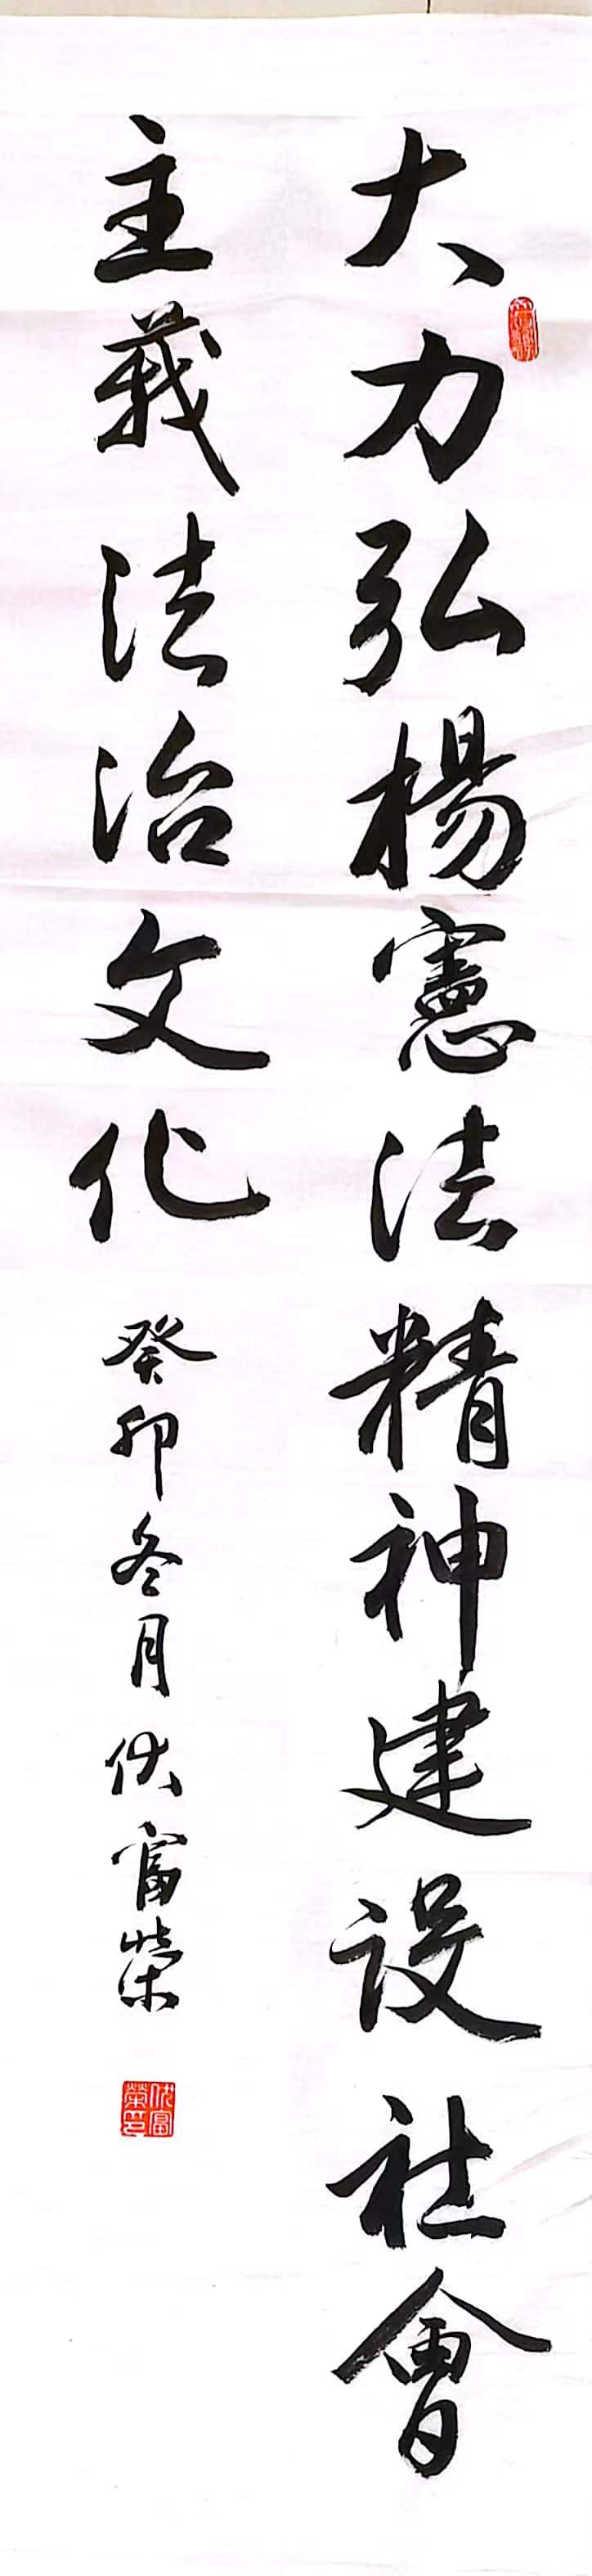 大力弘楊憲法精神建设社會
主義法治文化
癸卯冬月伏富榮
伏富榮印